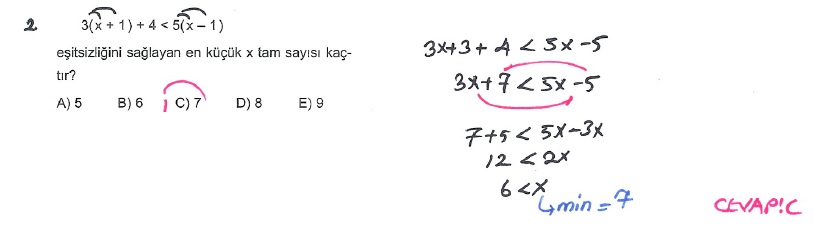 2 3(x + 1) + 4 < 5(x – 1)
eşitsizliğini sağlayan en küçük x tam sayısı kaç-
tır?
A) 5 B) 6 C) 7 D) 8 E) 9
3x+3+4<5x-5
3x+7<5x-5
7+5<5x-3x
12<2x
6<x
↳min=7
CEVAP:C